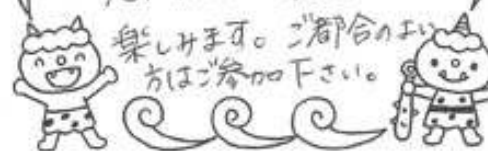 楽しみます。ご都合のよい
方はご参加下さい。